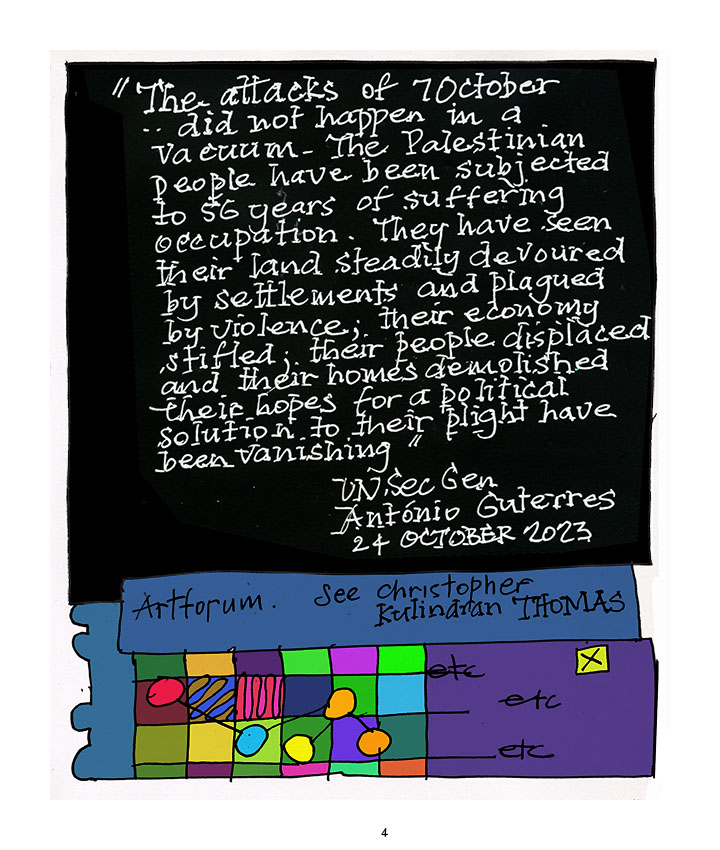 "The attacks of 7 October
.. did not happen in a
vacuum - The Palestinian
people have been subjected
to 56 years of suffering
occupation. They have seen
their land steadily devoured
by settlements and plagued
by violence; their economy
stifled; their people displaced
and their homes demolished
their hopes for a political
solution to their plight have
been vanishing"
UN, Sec Gen
António Guterres
24 OCTOBER 2023
Artforum. See christopher
kulindran THOMAS
etc
etc
etc
4